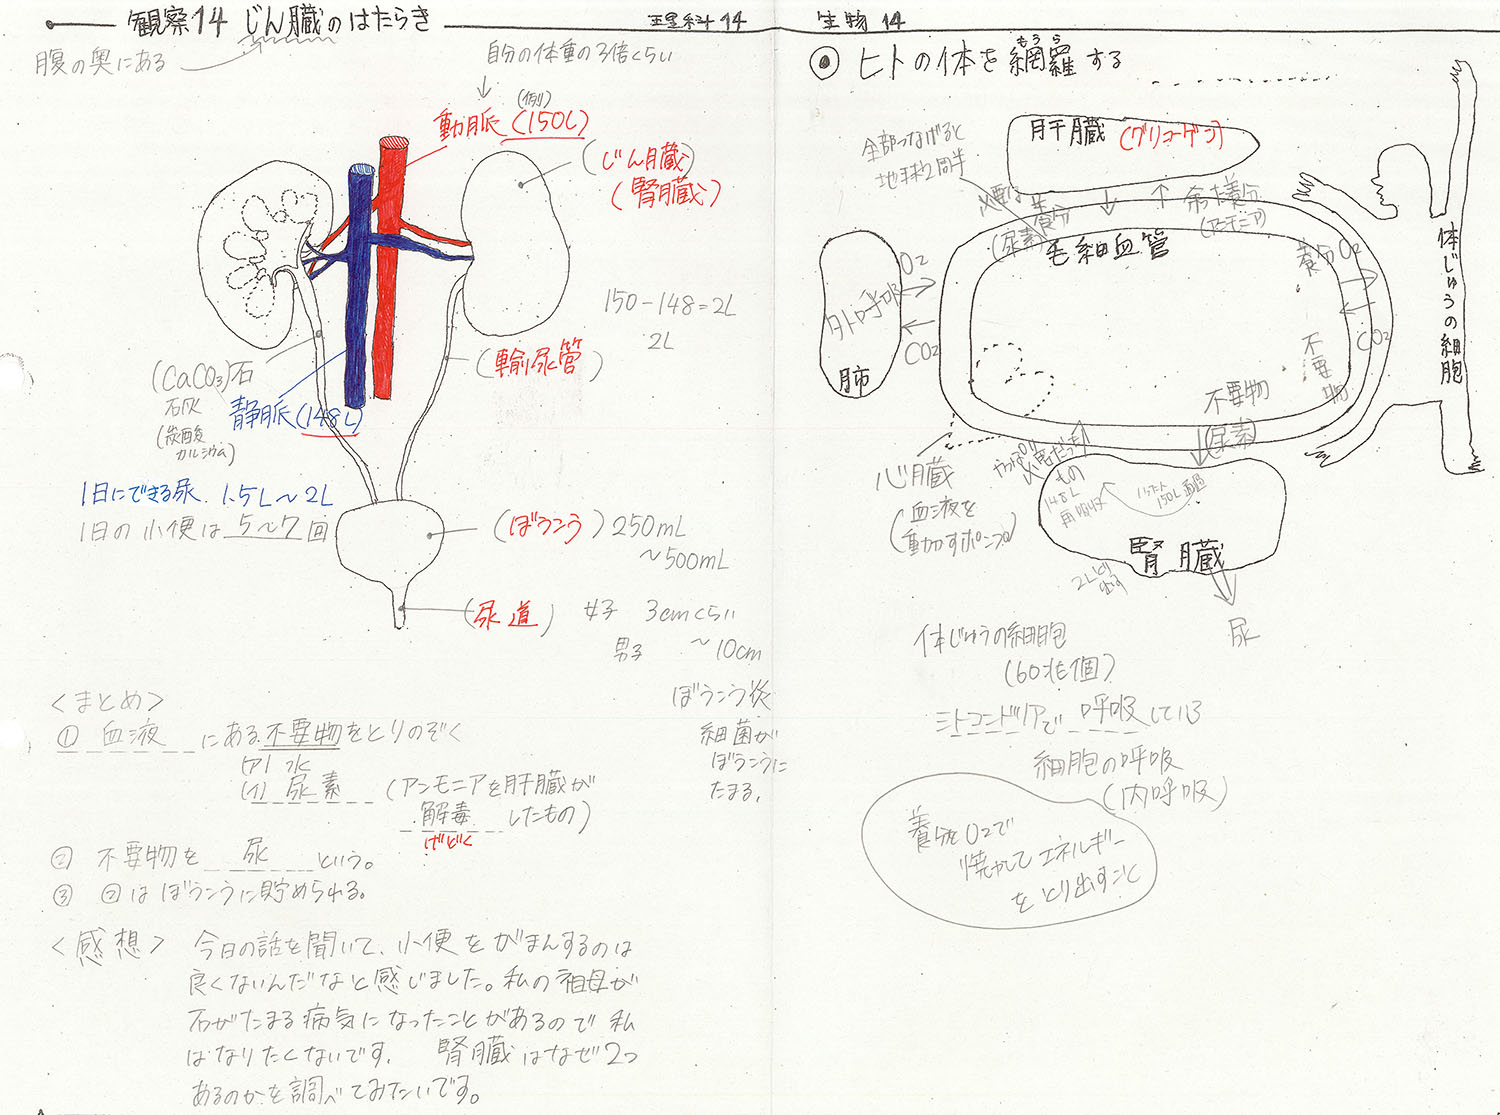 観察14 じん臓のはたらき
理科14
腹の奥にある
自分の体重の3倍くらい
(例)
動脈(150L)
(じん臓)
(腎臓)
150-148=2L
2L
(輸尿管)
(CaCO3)石
石灰
(炭酸
カルシウム)
静脈(148L)
1日にできる尿 1.5L～2L
1日の小便は5～7回
(ぼうこう)250mL
～500mL
(尿道)
女子 3cmくらい
男子 ～10cm
<まとめ>
① 血液 にある不要物をとりのぞく
(ア) 水
(イ) 尿素 (アンモニアを肝臓が
解毒 したもの)
げどく
② 不要物を 尿 という。
③ ②はぼうこうに貯められる。
ぼうこう炎
細菌が
ぼうこうに
たまる.
<感想> 今日の話を聞いて、小便をがまんするのは
良くないんだなと感じました。私の祖母が
石がたまる病気になったことがあるので私
はなりたくないです. 腎臓はなぜ2つ
あるのかを調べてみたいです。
生物 14
もうら
◉ ヒトの体を網羅する
全部つなげると
地球2周半
肝臓(グリコーゲン)
必要な養分
(尿素)
余った養分
(アンモニア)
毛細血管
外呼吸
肺
O2
CO2
養分 O2
CO2
不要物
体じゅうの細胞
不要物
(尿素)
心臓
(血液を
動かすポンプ)
やっぱり必要だった
もの
148L
再吸収
150L
腎臓
2L
尿
体じゅうの細胞
(60兆個)
ミトコンドリアで 呼吸している
細胞の呼吸
(内呼吸)
養分をO2で
燃やしてエネルギー
をとり出すこと